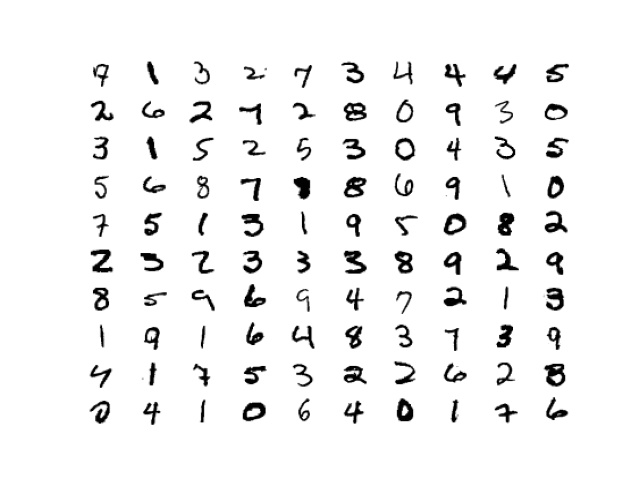 9 1 3 2 7 3 4 4 4 5
2 6 2 7 2 8 0 9 3 0
3 1 5 2 5 3 0 4 3 5
5 6 8 7 8 6 9 1 0
7 5 1 3 1 9 5 0 8 2
2 3 2 3 3 3 8 9 2 9
8 5 9 6 9 4 7 2 1 3
1 9 1 6 4 8 3 7 3 9
4 1 7 5 3 2 2 6 2 8
0 4 1 0 6 4 0 1 7 6